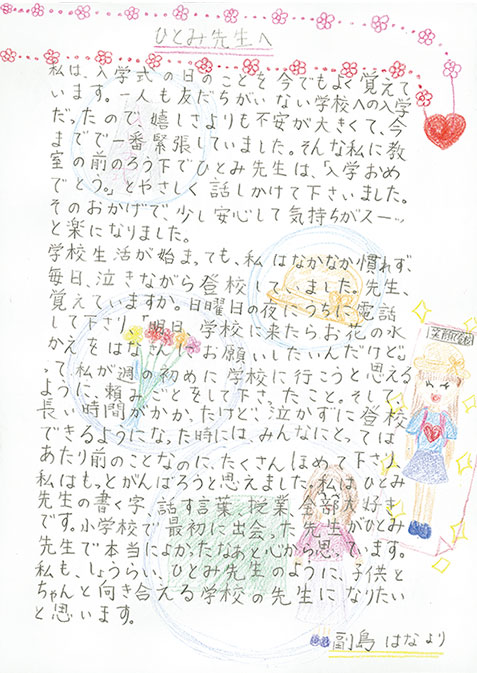 ひとみ先生へ
私は、入学式の日のことを今でもよく覚えて
います。一人も友だちがいない学校への入学
だったので、嬉しさよりも不安が大きくて、今
までで一番緊張していました。そんな私に教
室の前のろう下でひとみ先生は、「入学おめ
でとう。」とやさしく話しかけて下さいました。
そのおかげで、少し安心して気持ちがスーッ
と楽になりました。
学校生活が始まっても、私はなかなか慣れず、
毎日、泣きながら登校していました。先生、
覚えていますか。日曜日の夜にうちに電話
して下さり「明日、学校に来たらお花の水
かえをはなさんにお願いしたいんだけど」
って私が週の初めに学校に行こうと思える
ように、頼みごとをして下さったこと。そして、
長い時間がかかったけど、泣かずに登校
できるようになった時には、みんなにとっては
あたり前のことなのに、たくさんほめて下さり、
私はもっとがんばろうと思えました。私はひとみ
先生の書く字、話す言葉、授業、全部大好き
です。小学校で最初に出会った先生がひとみ
先生で本当によかったなあと心から思っています。
私も、しょうらい、ひとみ先生のように、子供と
ちゃんと向き合える学校の先生になりたい
と思います。
副島 はなより